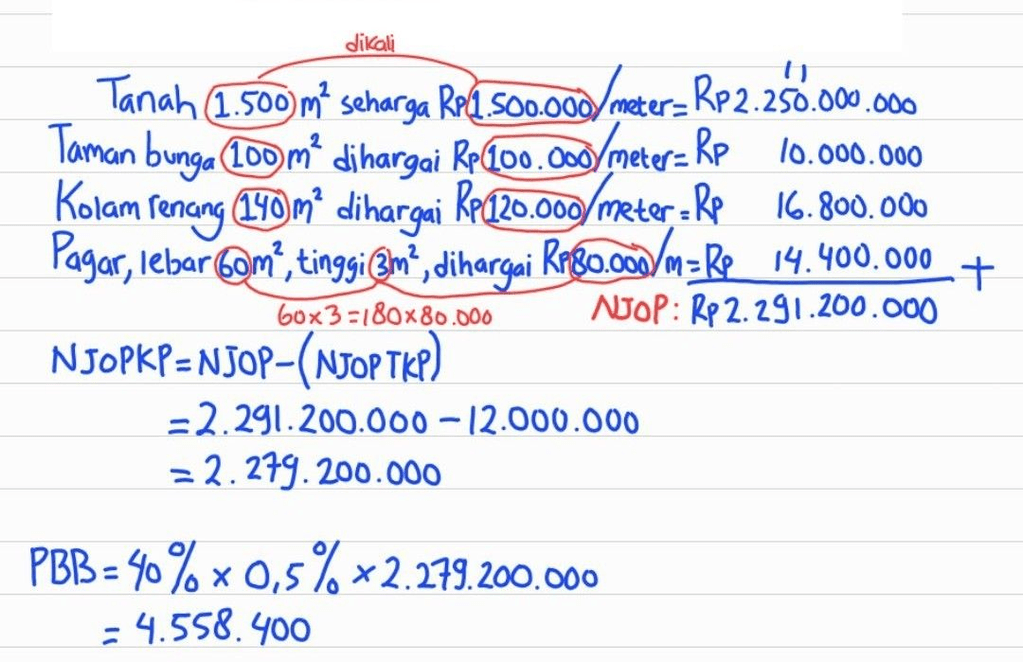 dikali
Tanah 1.500 m² seharga Rp1.500.000/meter= Rp2.250.000.000
Taman bunga 100 m² dihargai Rp100.000/meter= Rp 10.000.000
Kolam renang 140 m² dihargai Rp120.000/meter= Rp 16.800.000
Pagar, lebar 60m², tinggi 3m², dihargai Rp80.000/m= Rp 14.400.000 +
60×3=180×80.000 NJOP: Rp2.291.200.000
NJOPKP= NJOP-(NJOPTKP)
= 2.291.200.000 - 12.000.000
= 2.279.200.000
PBB= 40% × 0,5% × 2.279.200.000
= 4.558.400